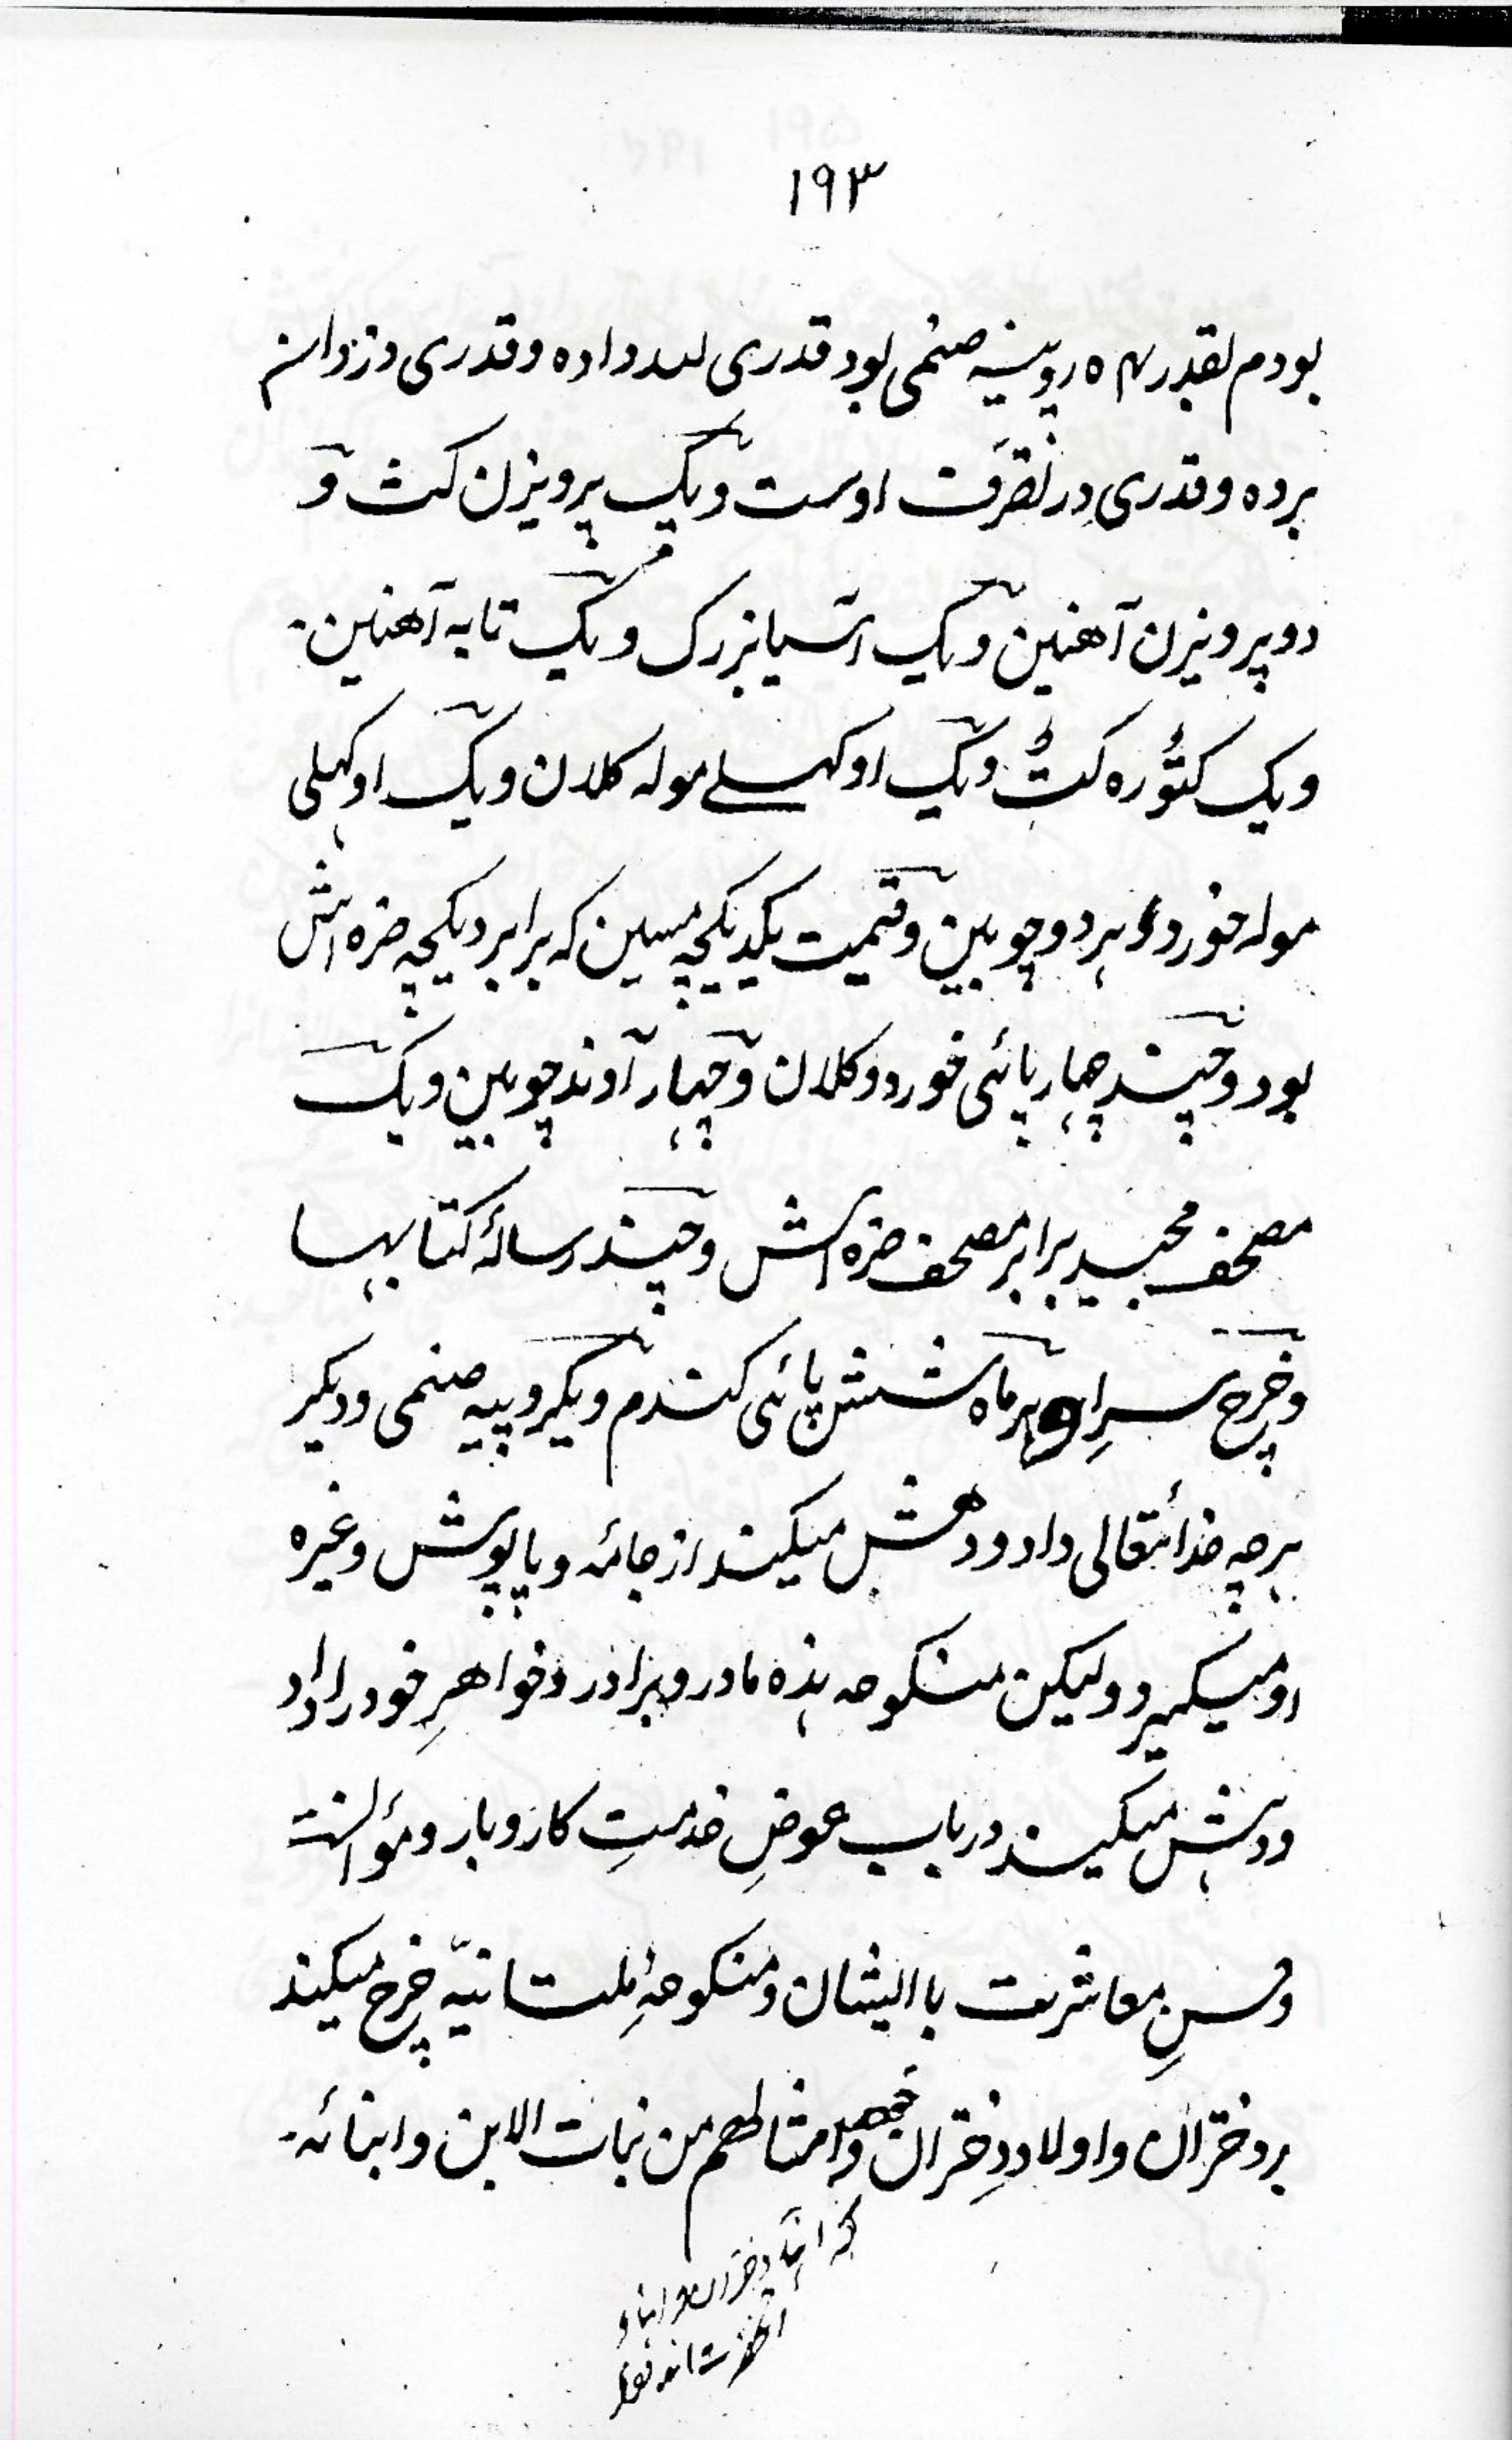 ۱۹۳
بودم بقدر ۵۴ روپیه ضخمی بود قدری داده وقدری دزدان
برده وقدری در تصرّف اوست ویک پرویزن کٹ و
دو پرویزن آهنین ویک اسیا بزرک ویک تابه آهنین۔
ویک کٹوره کٹ ویک اوکهلے موله کلان ویک اوکهلی
موله خورد ہردو چوبین وقیمت یکدیکچه مسین که برابر دیکچه ضره اش
بود وچند چهارپائی خورد وکلان وچهار آوند چوبین ویک
مصحف مجید برابر مصحف ضره اش وچند رسالۂ کتابہا
وخرچ سرِ او ہرماه شش پائی کندم ویکروپیه ضخمی ودیکر
ہرچه خدائتعالی داد ودهش میکند از جامه وپاپوش وغیره
او میکیرد ولیکن منکوحه ہذه مادر وبرادر وخواهرِ خود را داد
ودہش میکند درباب عوضِ خدمتِ کاروبار ومؤانست
وحسنِ معاشرت با ایشان ومنکوحۂ ملتانیّه خرچ میکند
بر دختران واولادِ دختران وامثالهم من بنات الابن وابنائه۔